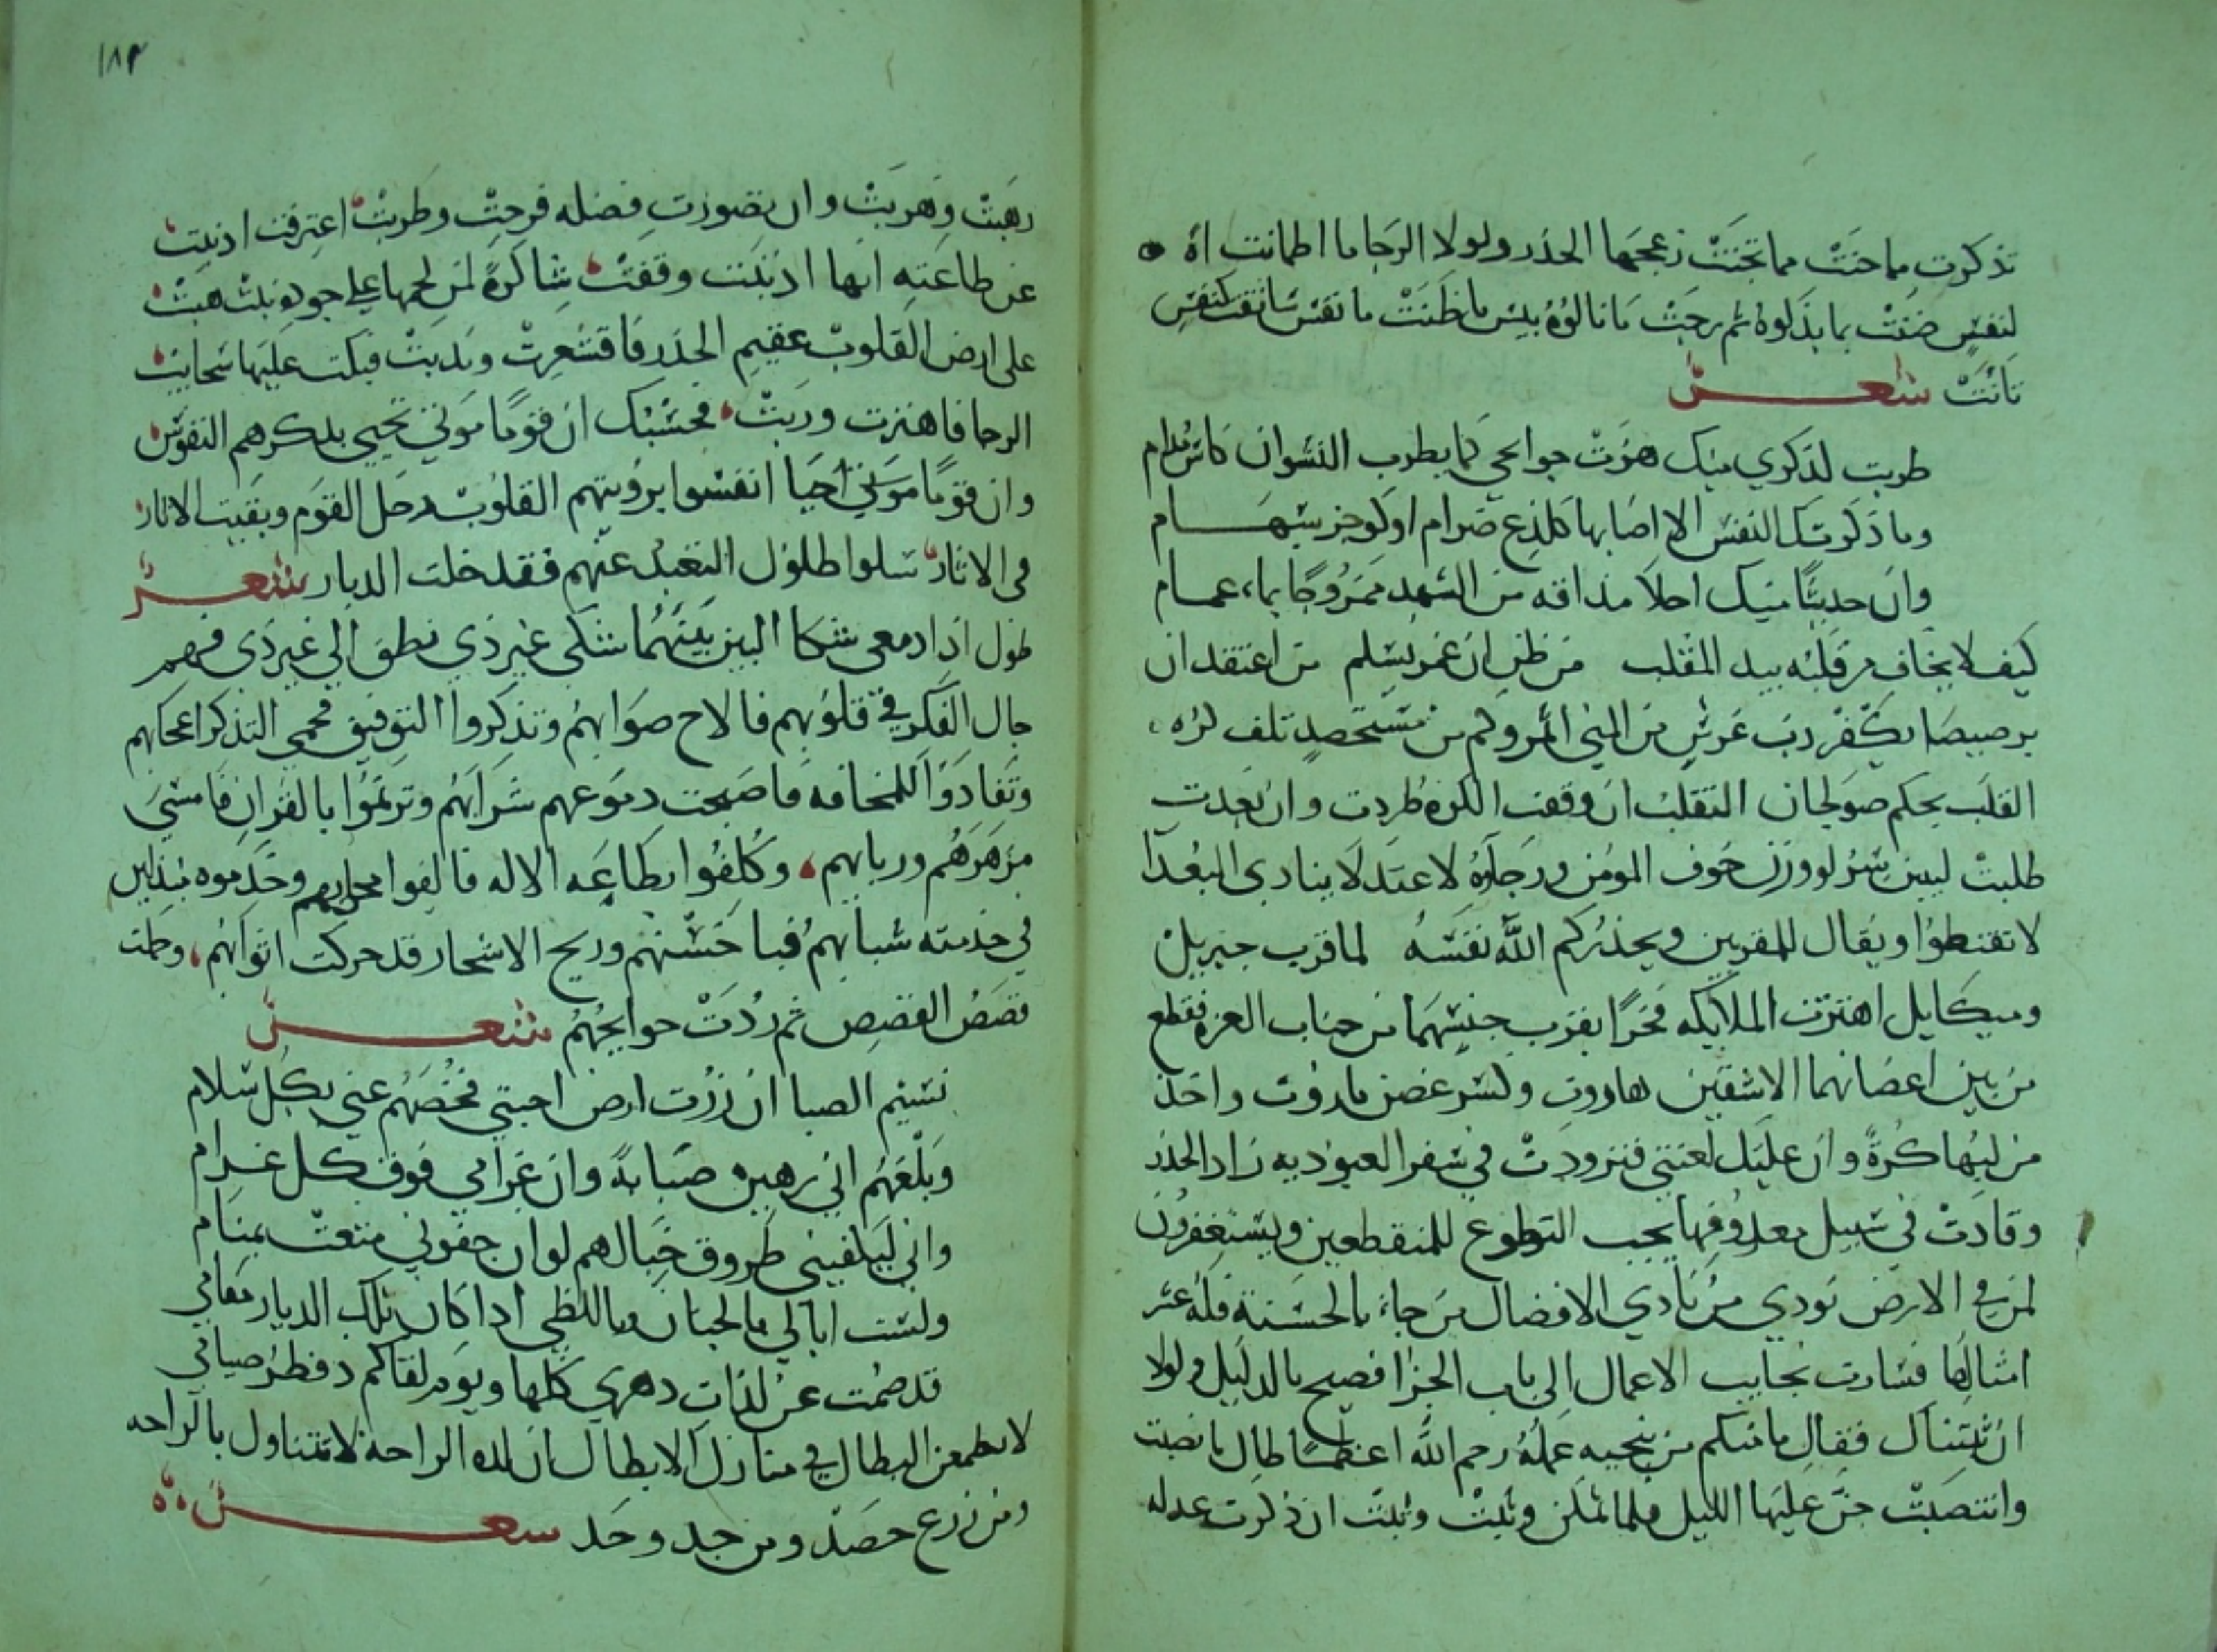 تذكرت ما جنت مما تجننت زعجها الحذر ولولا الرجا ما اطمانت اه
لنفس ضنت بما بذلوه ثم رجت ما نالوه بيس ما ظنت ما نفس سابقت كنفس
تانت شعر
طربت لذكري منك هزت جوانحي كما يطرب النشوان كاس مدام
وما ذكرتك النفس الا اصابها كلذع ضرام او كوخز سهام
وان حديثا منك احلا مذاقه من الشهد ممزوجا بماء غمام
كيف لا يخاف من قلبه بيد المقلب من ظن ان عمر يسلم من اعتقد ان
برصيصا يكفر رب غرس من المني اثمر وكم من مستحصد تلف كره
القلب بحكم صولجان التقلب ان وقفت الكره طردت وان بعدت
طلبت ليبين سر لو وزن خوف المومن ورجاوه لاعتدلا ينادي البعدا
لا تقنطوا ويقال للمقربين ويحذركم الله نفسه لما قرب جبريل
وميكايل اهتزت الملايكه فخرا بقرب جنسهما من جناب العزه فقطع
من بين اعضانهما الاشقين هاروت وكسر غصن ماروت واخذ
من لبها كرة وان عليك لعنتي فتزودت في سفر العبوديه زاد الحذر
وقادت في سبيل معروفها نجب التطوع للمنقطعين ويستغفرون
لمن في الارض نودي من نادي الافضال من جاء بالحسنة فله عشر
امثالها فسارت نجايب الاعمال الي باب الجزا فصيح بالدليل ولولا
ان ثبتناك فقال ما منكم من ينجيه عمله رحم الله اعظما طال ما نصبت
وانتصبت جن عليها الليل فلما تمكن وثبت وثبت ان ذكرت عدله
١٨٣
رهبت وهربت وان تصورت فضله فرحت وطربت اعترفت اذ نبت
عن طاعته انها اذنبت وقفت شاكرة لمن لحمها على جوده نبت هبت
على ارض القلوب عقيم الحذر فاقشعرت وندبت فبكت عليها سحايب
الرجا فاهتزت وربت فحسبك ان قوما موتي تحيي بذكرهم النفوس
وان قوما موتي احيا انفسوا برويتهم القلوب رحل القوم وبقيت الاثار
في الاثار سلوا طلول التعبد عنهم فقد خلت الديار شعر
طول اذا دمعي شكا البين بينهما شكى غير ذي نطق الي غير ذي فهم
جال الفكر في قلوبهم فالاح صوابهم وتذكروا التوفيق فمحي التذكر اعجابهم
وتفادوا للمخافه فاصبحت دموعهم شرابهم وترنموا بالقران فامسي
مزهرهم وربابهم وكلفوا بطاعه الاله فالفوا محرابهم وخدموه مبتذلين
في خدمته شبابهم فيا حسنهم وريح الاسحار قد حركت اثوابهم وحملت
قصص الغصص ثم ردت حوابجهم شعر
نسيم الصبا ان زرت ارض احبتي فخصهم عني بكل سلام
وبلغهم اني رهين صبابة وان غرامي فوق كل غرام
واني ليكفيني طروق خيالهم لو ان جفوني متعت بمنام
ولست ابالي بالجنان وباللظي اذا كان تلك الديار مقامي
قد صمت عن لذات دهري كلها ويوم لقاكم د فطر صيامي
لا يطمعن البطال في منازل الابطال ان لذه الراحه لا تتناول بالراحه
ومن زرع حصد ومن جد وجد شعر